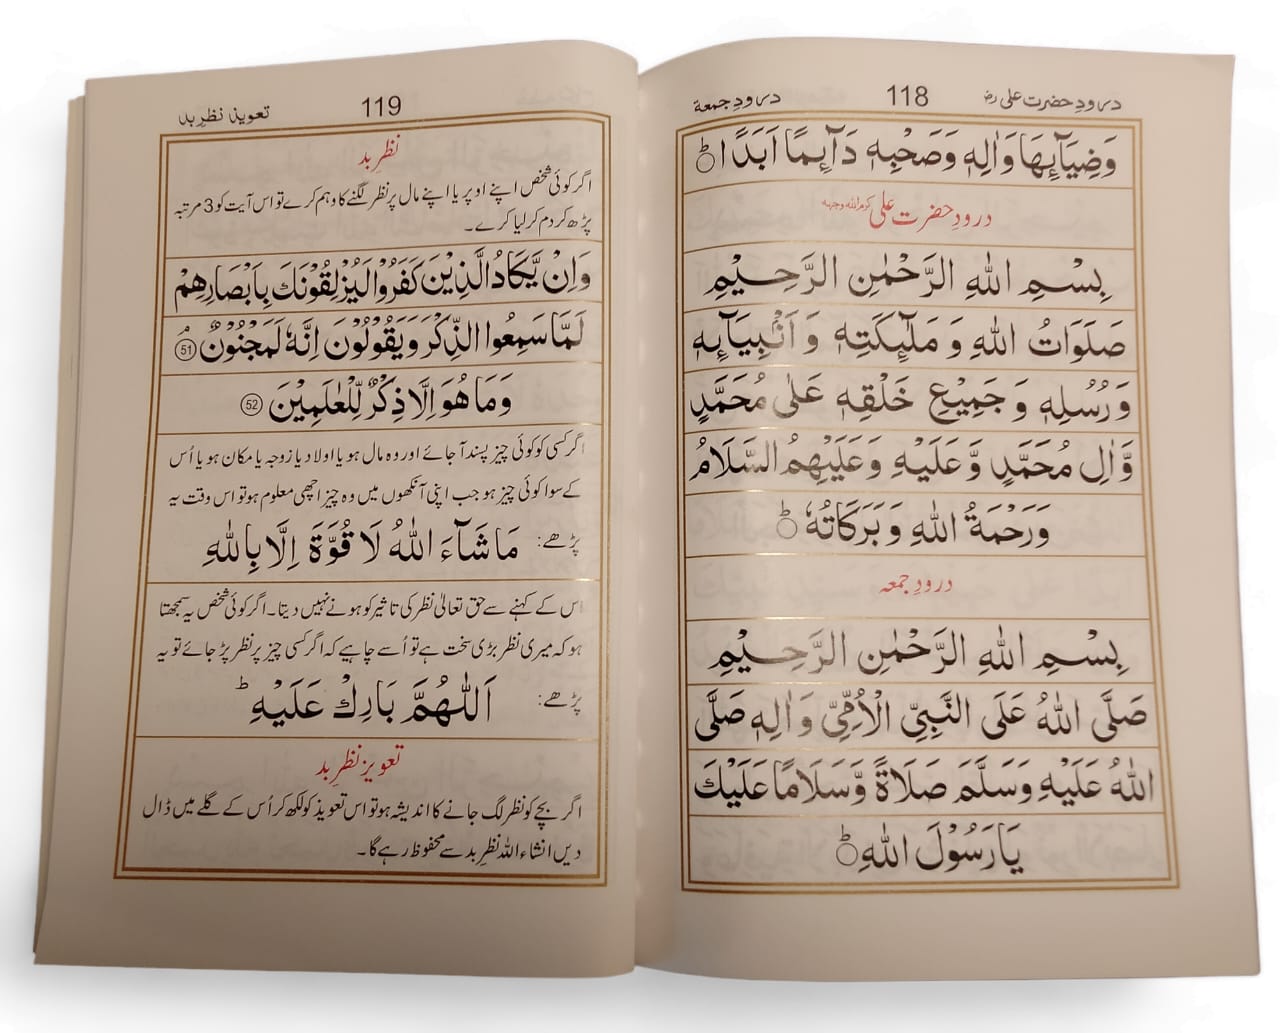 درودِ حضرت علی رض 118 درودِ جمعة
وَضِیَآئِھَا وَاٰلِہٖ وَصَحْبِہٖ دَآئِمًا اَبَدًا ؕ○
درودِ حضرت علی کرم اللہ وجہہ
بِسْمِ اللهِ الرَّحْمٰنِ الرَّحِیْمِ
صَلَوَاتُ اللهِ وَ مَلٰٓئِکَتِہٖ وَ اَنْۢبِیَآئِہٖ
وَرُسُلِہٖ وَ جَمِیْعِ خَلْقِہٖ عَلٰی مُحَمَّدٍ
وَّاٰلِ مُحَمَّدٍ وَّعَلَیْہِ وَعَلَیْھِمُ السَّلَامُ
وَرَحْمَةُ اللهِ وَبَرَکَاتُہٗ ؕ○
درودِ جمعہ
بِسْمِ اللهِ الرَّحْمٰنِ الرَّحِیْمِ
صَلَّی اللهُ عَلَی النَّبِیِّ الْاُمِّیِّ وَاٰلِہٖ صَلَّی
اللهُ عَلَیْہِ وَسَلَّمَ صَلَاةً وَّسَلَامًا عَلَیْكَ
یَا رَسُوْلَ اللهِ ؕ○
119 تعویذ نظرِ بد
نظرِ بد
اگر کوئی شخص اپنے اوپر یا اپنے مال پر نظر لگنے کا وہم کرے تو اس آیت کو 3 مرتبہ
پڑھ کر دم کر لیا کرے۔
وَاِنْ یَّکَادُ الَّذِیْنَ کَفَرُوْا لَیُزْلِقُوْنَكَ بِاَبْصَارِھِمْ
لَمَّا سَمِعُوا الذِّکْرَ وَیَقُوْلُوْنَ اِنَّہٗ لَمَجْنُوْنٌ ۘ 51
وَمَا ھُوَ اِلَّا ذِکْرٌ لِّلْعٰلَمِیْنَ 52
اگر کسی کو کوئی چیز پسند آ جائے اور وہ مال ہو یا اولاد یا زوجہ یا مکان ہو یا اُس
کے سوا کوئی چیز ہو جب اپنی آنکھوں میں وہ چیز اچھی معلوم ہو تو اس وقت یہ
پڑھے: مَاشَآءَ اللهُ لَا قُوَّةَ اِلَّا بِاللهِ
اس کے کہنے سے حق تعالیٰ نظر کی تاثیر کو ہونے نہیں دیتا۔ اگر کوئی شخص یہ سمجھتا
ہو کہ میری نظر بڑی سخت ہے تو اُسے چاہیے کہ اگر کسی چیز پر نظر پڑ جائے تو یہ
پڑھے: اَللّٰھُمَّ بَارِكْ عَلَیْہِ ؕ
تعویز نظرِ بد
اگر بچے کو نظر لگ جانے کا اندیشہ ہو تو اس تعویذ کو لکھ کر اُس کے گلے میں ڈال
دیں انشاء اللہ نظرِ بد سے محفوظ رہے گا۔